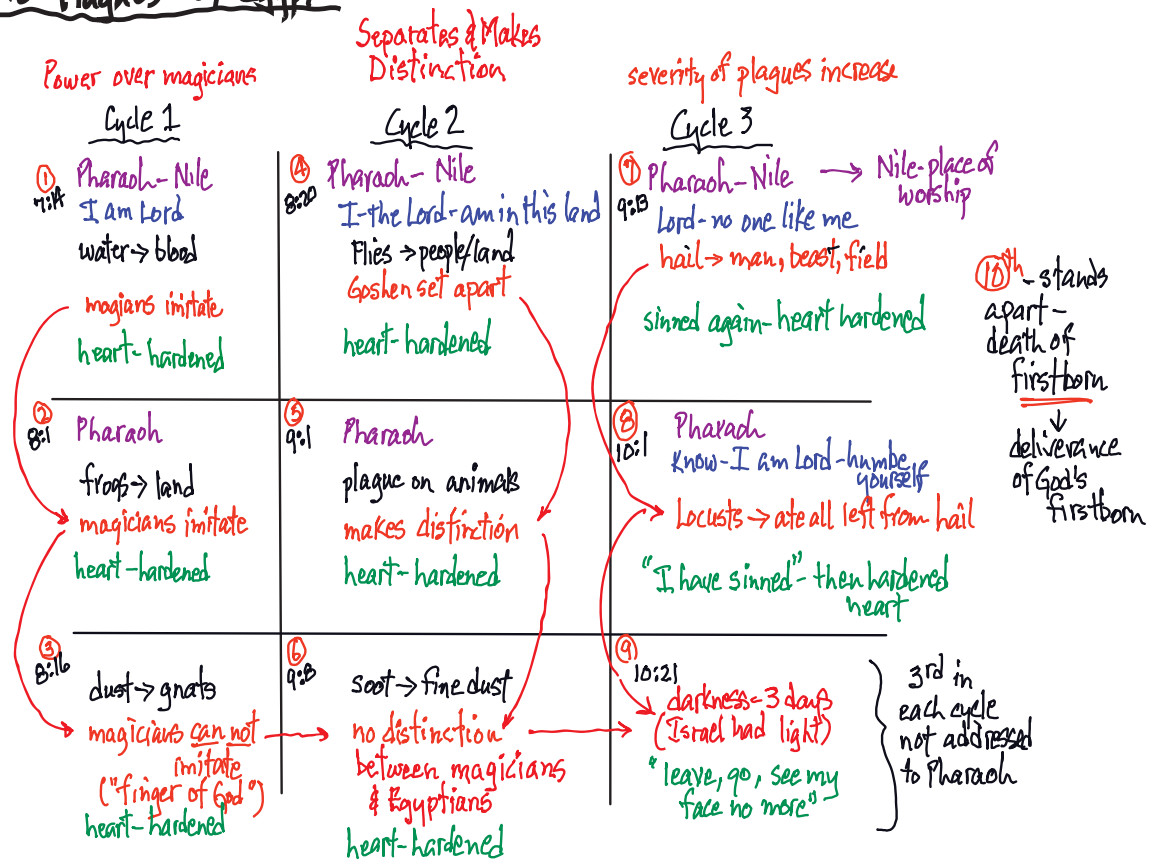 Plagues
Power over magicians
Cycle 1
① Pharaoh - Nile
7:14
I am Lord
water → blood
magians imitate
heart - hardened
② Pharaoh
8:1
frogs → land
magicians imitate
heart - hardened
③
8:16
dust → gnats
magicians can not
imitate
("finger of God")
heart - hardened
Separates & Makes
Distinction
Cycle 2
④ Pharaoh - Nile
8:20
I - the Lord - am in this land
Flies → people/land
Goshen set apart
heart - hardened
⑤ Pharaoh
9:1
plague on animals
makes distinction
heart - hardened
⑥
9:8
soot → fine dust
no distinction
between magicians
& Egyptians
heart - hardened
severity of plagues increase
Cycle 3
⑦ Pharaoh - Nile → Nile - place of
worship
9:13
Lord - no one like me
hail → man, beast, field
sinned again - heart hardened
⑧ Pharaoh
10:1
Know - I am Lord - humbe
yourself
Locusts → ate all left from hail
"I have sinned" - then hardened
heart
⑨
10:21
darkness = 3 days
(Israel had light)
"leave, go, see my
face no more"
3rd in
each cycle
not addressed
to Pharaoh
10th - stands
apart -
death of
firstborn
↓
deliverance
of God's
firstborn